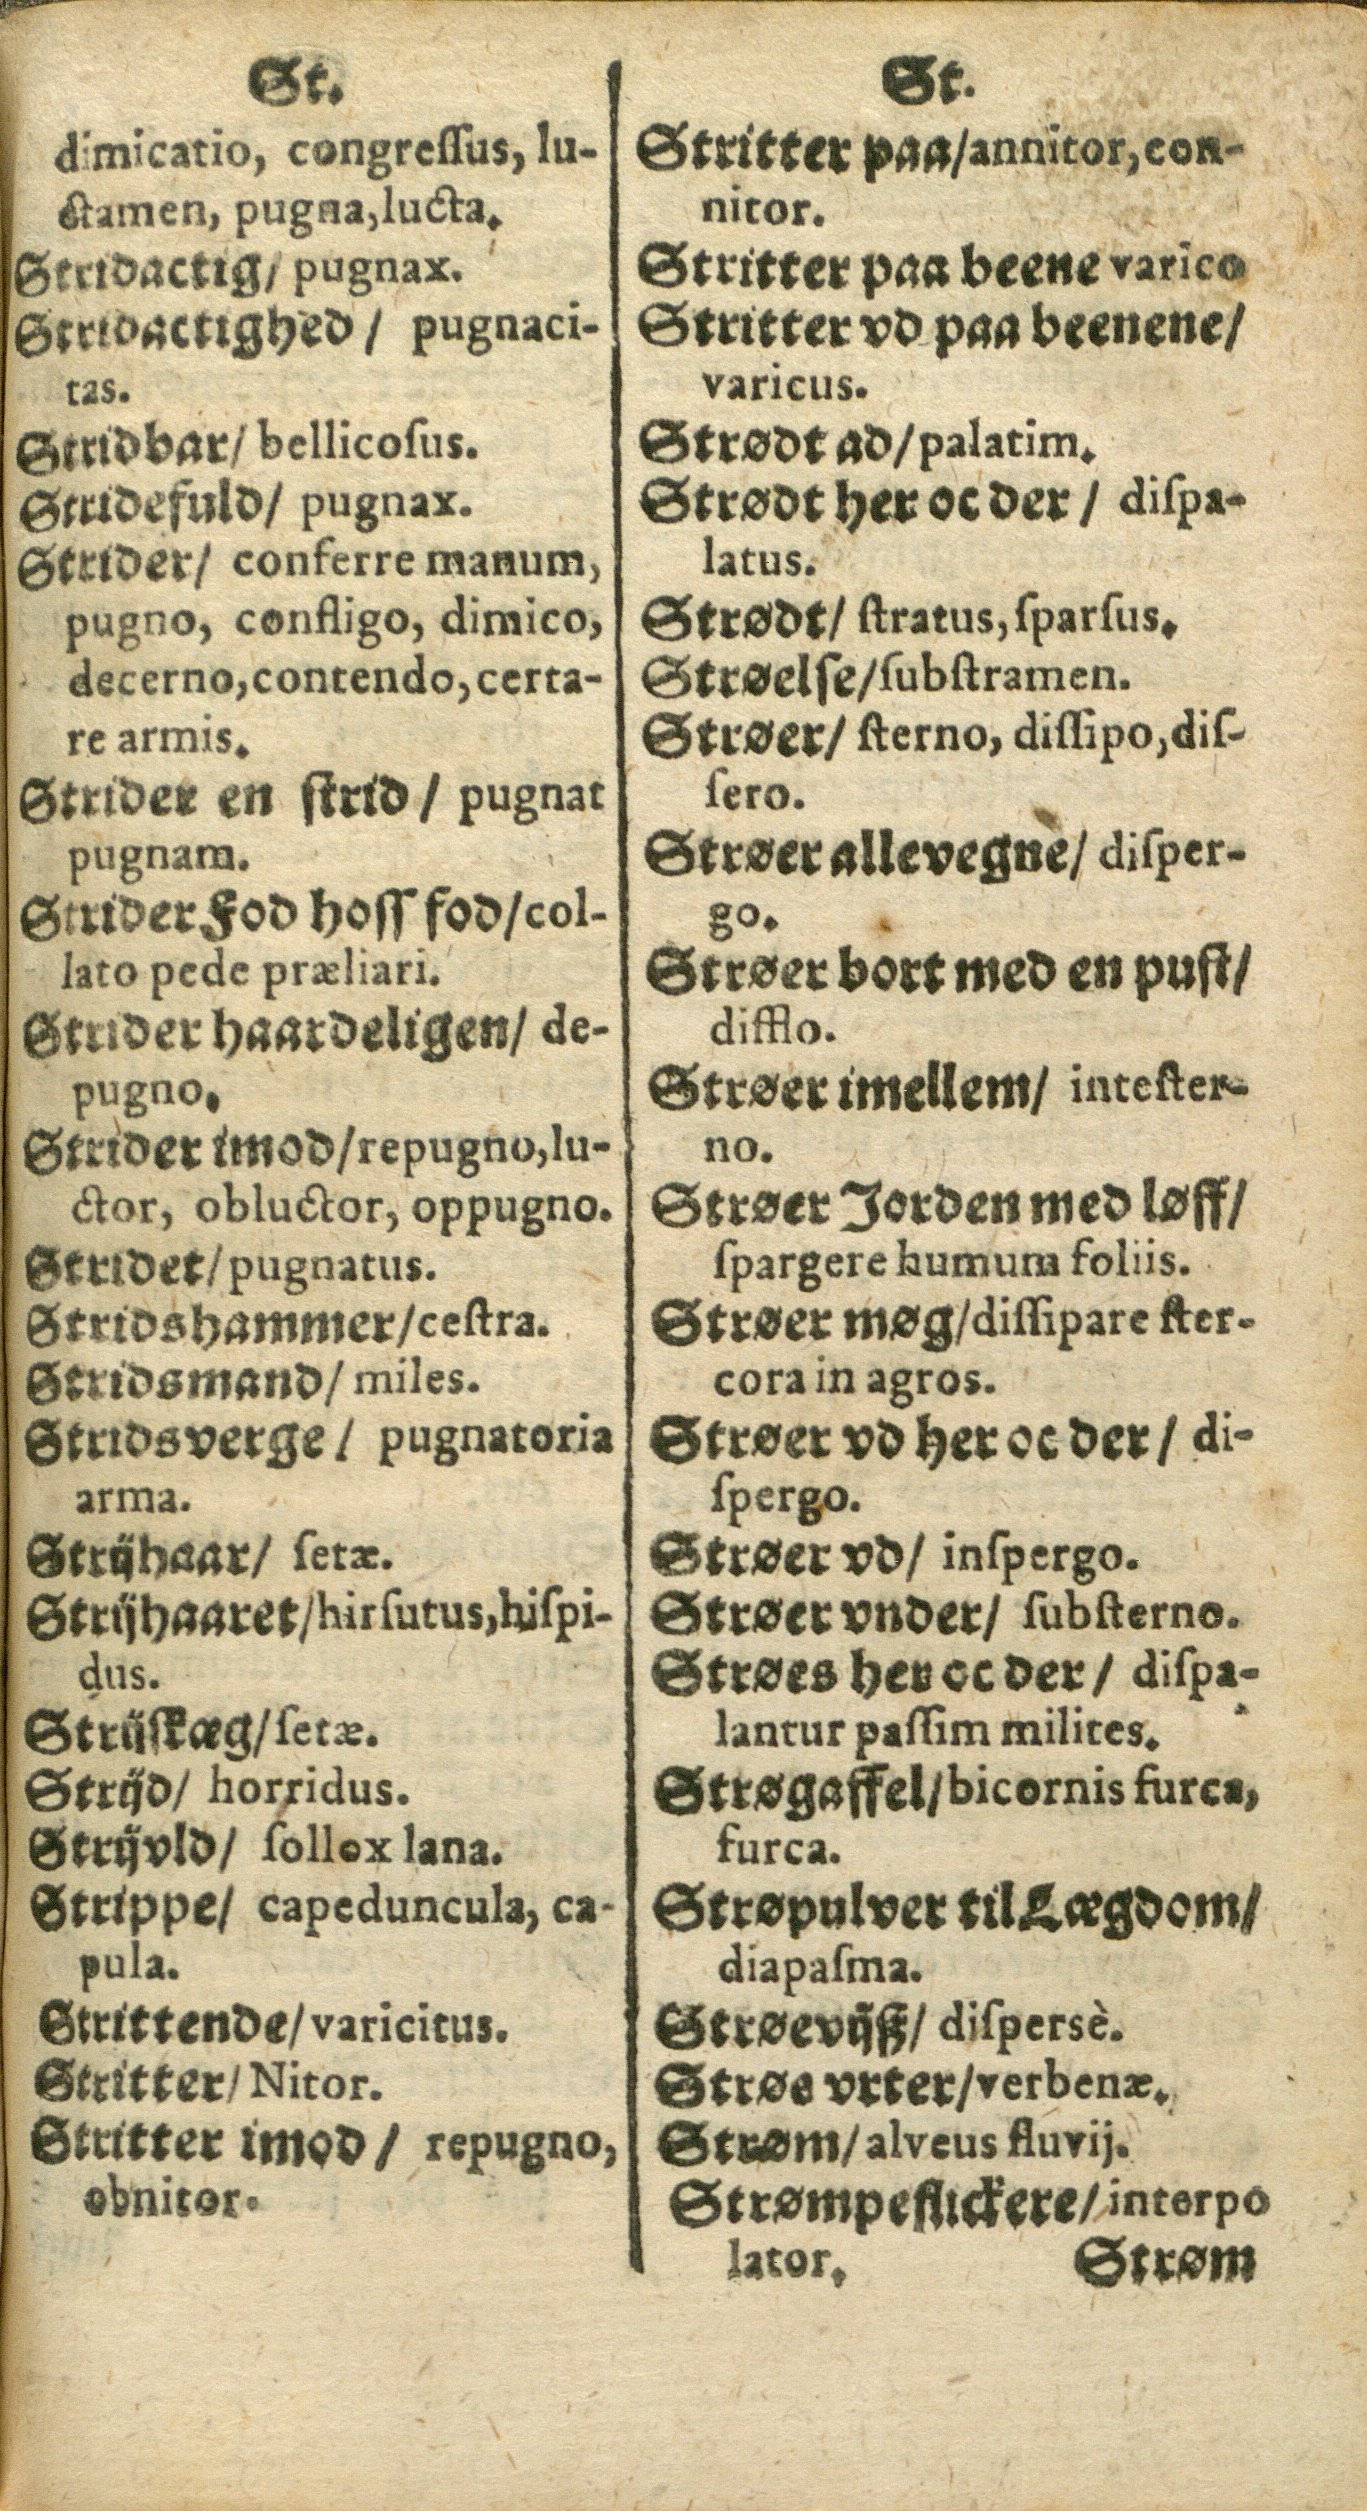 St.
dimicatio, congreſſus, lu-
ctamen, pugna, lucta.
Stridactig/ pugnax.
Stridactighed/ pugnaci-
tas.
Stridbar/ bellicoſus.
Stridefuld/ pugnax.
Strider/ conferre manum,
pugno, confligo, dimico,
decerno, contendo, certa-
re armis.
Strider en ſtrid/ pugnat
pugnam.
Strider Fod hoſſ fod/ col-
lato pede præliari.
Strider haardeligen/ de-
pugno.
Strider imod/ repugno, lu-
ctor, obluctor, oppugno.
Stridet/ pugnatus.
Stridshammer/ ceſtra.
Stridsmand/ miles.
Stridsverge/ pugnatoria
arma.
Strijhaar/ ſetæ.
Strijhaaret/ hirſutus, hiſpi-
dus.
Strijſkæg/ ſetæ.
Strijd/ horridus.
Strijvld/ ſollox lana.
Strippe/ capeduncula, ca-
pula.
Strittende/ varicitus.
Stritter/ Nitor.
Stritter imod/ repugno,
obnitor.
St.
Stritter paa/ annitor, con-
nitor.
Stritter paa beene varico
Stritter vd paa beenene/
varicus.
Strødt ad/ palatim.
Strødt her oc der/ diſpa-
latus.
Strødt/ ſtratus, ſparſus.
Strøelſe/ ſubſtramen.
Strøer/ ſterno, diſſipo, diſ-
ſero.
Strøer allevegne/ diſper-
go.
Strøer bort med en puſt/
difflo.
Strøer imellem/ inteſter-
no.
Strøer Jorden med løff/
ſpargere humum foliis.
Strøer møg/ diſſipare ſter-
cora in agros.
Strøer vd her oc der/ di-
ſpergo.
Strøer vd/ inſpergo.
Strøer vnder/ ſubſterno.
Strøes her oc der/ diſpa-
lantur paſſim milites.
Strøgaffel/ bicornis furca,
furca.
Strøpulver til Lægdom/
diapaſma.
Strøevijß/ diſpersè.
Strøe vrter/ verbenæ.
Strøm/ alveus fluvij.
Strømpeflickere/ interpo
lator.
Strøm